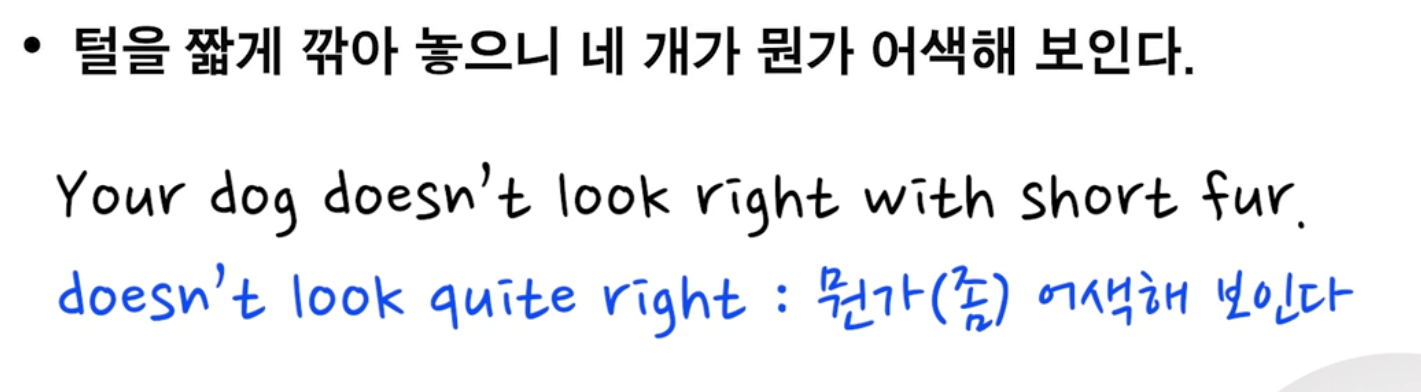 • 털을 짧게 깎아 놓으니 네 개가 뭔가 어색해 보인다.
Your dog doesn't look right with short fur.
doesn't look quite right : 뭔가(좀) 어색해 보인다